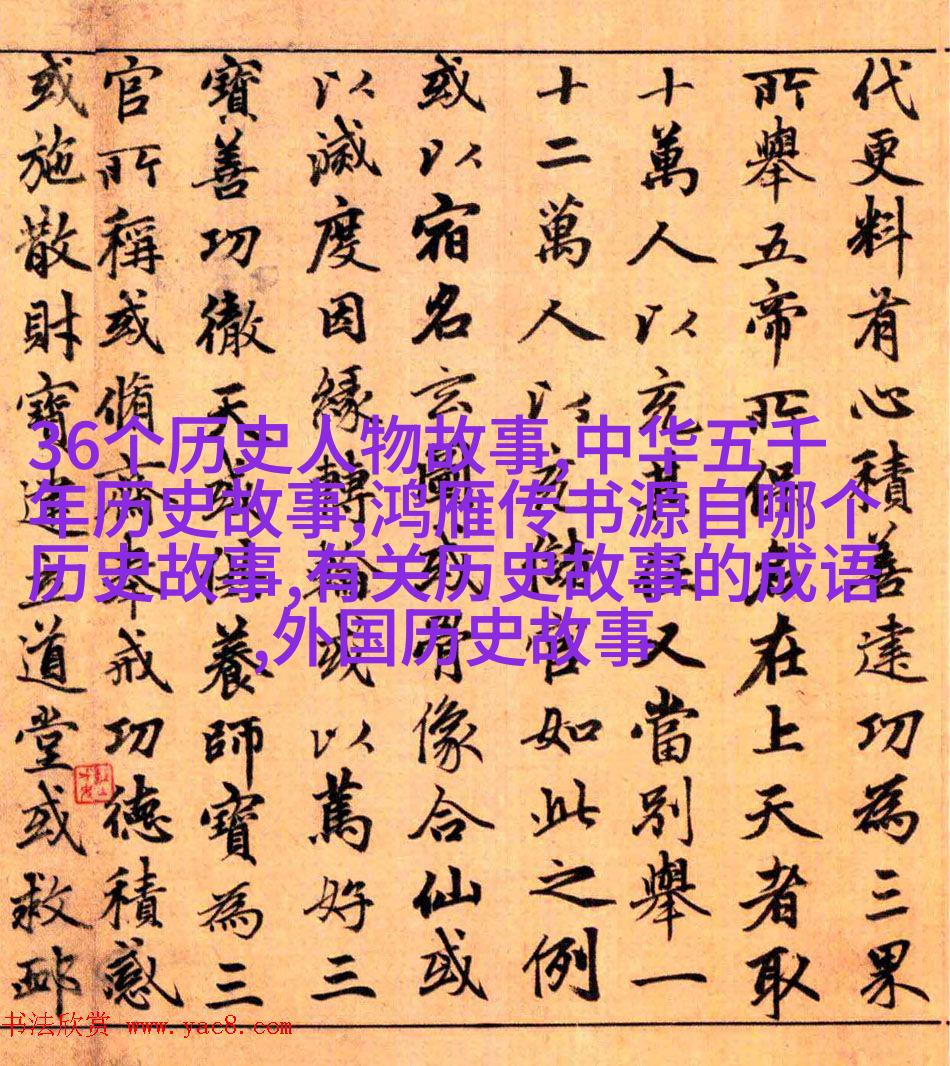 代更料有心積善建功為三果
所舉五帝所保在上天者取
十萬人以充其任又當別舉一
十二萬人以充儲官如此之例
或以宿名玄圖或骨像合仙或
以滅度因緣轉輪或以篤好三
寶善功徹天或供養師寶為三
官所稱或脩齋奉戒功德積感
或施散財寶建立道堂或救
36个历史人物故事,中华五千
年历史故事,鸿雁传书源自哪个
历史故事,有关历史故事的成语
,外国历史故事
书法欣赏 www.yac8.com